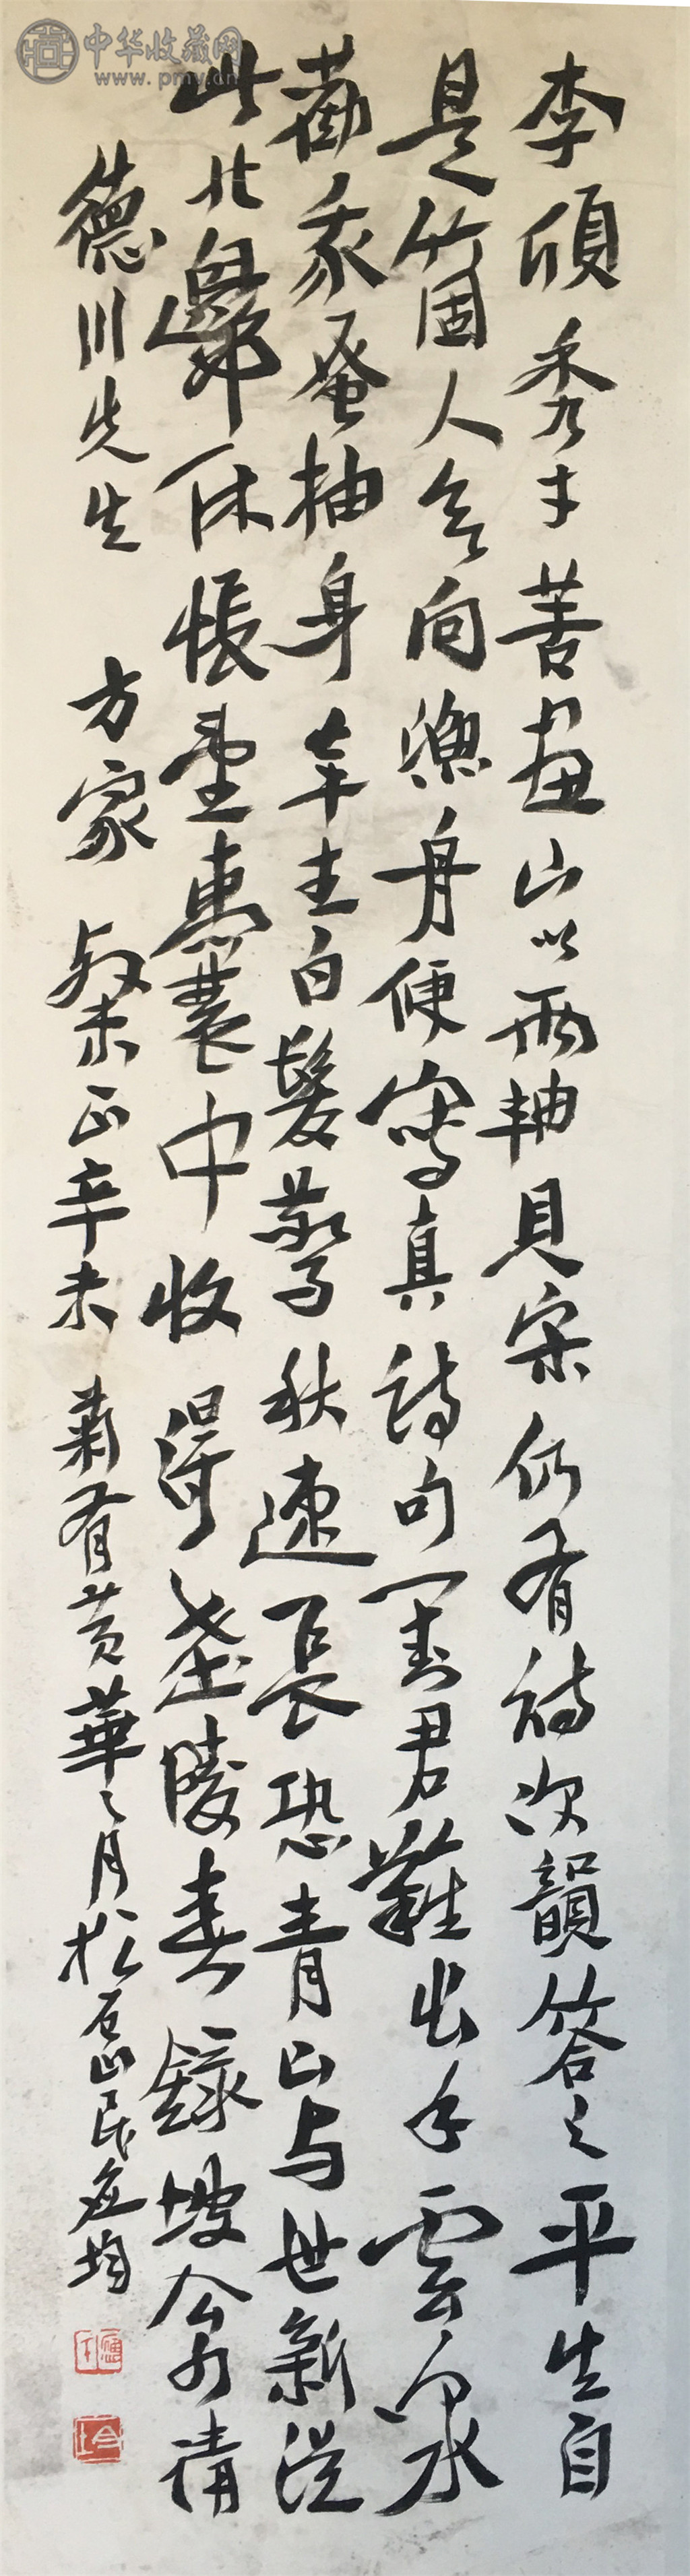 李頎秀才善畫山以兩軸見寄仍有詩次韻答之平生自
是箇人今向漁舟便寫真詩句對君難出手雲泉
勸我蚤抽身年來白髮驚秋速長恐青山與世新從
此北歸休悵望囊中收得武陵春錄坡翁詩
德川先生 方家 教正辛未 菊有黃華之月松石山民
中华收藏网
www.pmy.cn